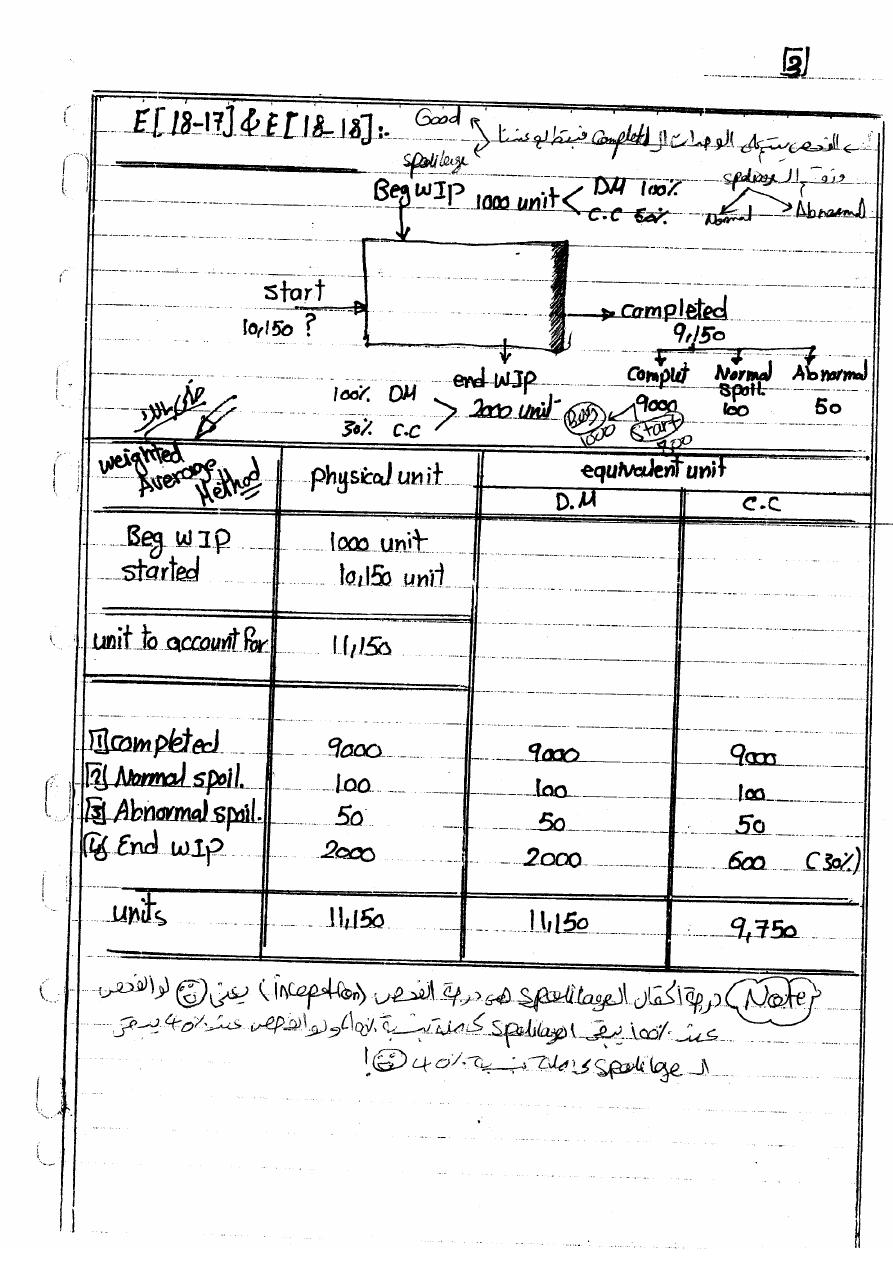 3
E[18-17] & E[18-18]:.
Good
الفحص بيتم على الوحدات ال Completed فبتطلع عندنا
spoilleage
spoilage
Normal
Abnormal
Beg WIP 1000 unit DM 100%
C.C 50%
start
10,150 ?
completed
9,150
Complet Normal Spoil. Abnormal
9000 100 50
Beg 1000 Start
end WIP
2000 unit
100% DM
30% C.C
Weighted Average Method
physical unit
equivalent unit
D.M C.C
Beg WIP 1000 unit
started 10,150 unit
unit to account for 11,150
1 completed 9000 9000 9000
2 Normal spoil. 100 100 100
3 Abnormal spoil. 50 50 50
4 End WIP 2000 2000 600 (30%)
units 11,150 11,150 9,750
Note درجة اكمال ال spoilage هى درجة الفحص (inception) يعنى لو الفحص
عند 100% يبقى ال spoilage كاملة بنسبة 100% ولو الفحص عند 40% يبقى
ال spoilage كاملة بنسبة 40% !